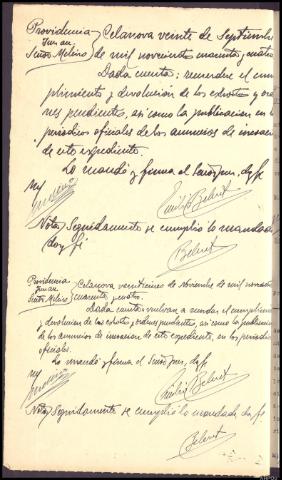 Providencia Celanova veinte de Septiembre
Juez acc.
Señor Meleiro de mil novecientos cuarenta y cuatro
Dada cuenta; recuerdese el cum
plimiento y devolución de los exhortos y orde
nes pendientes, asi como la publicacion en los
periodicos oficiales de los anuncios de incoación
de este expediente.
Lo mandó y firma el Señor Juez, doy fe
Emilio Beleret
Nota/ Seguidamente se cumplió lo mandado
doy fé
Beleret
Providencia Celanova veintiuno de Noviembre de mil novecientos
Señor Meleiro cuarenta y cuatro.
Dada cuenta vuelvan a recordar el cumplimiento
y devolucion de los exhortos y ordenes pendientes, asi como la publicacion
de los anuncios de incoación de este expediente, en los periodicos
oficiales
Lo mandó y firma el Señor Juez, doy fe
Emilio Beleret
Nota/ Seguidamente se cumplió lo mandado doy fe
Beleret